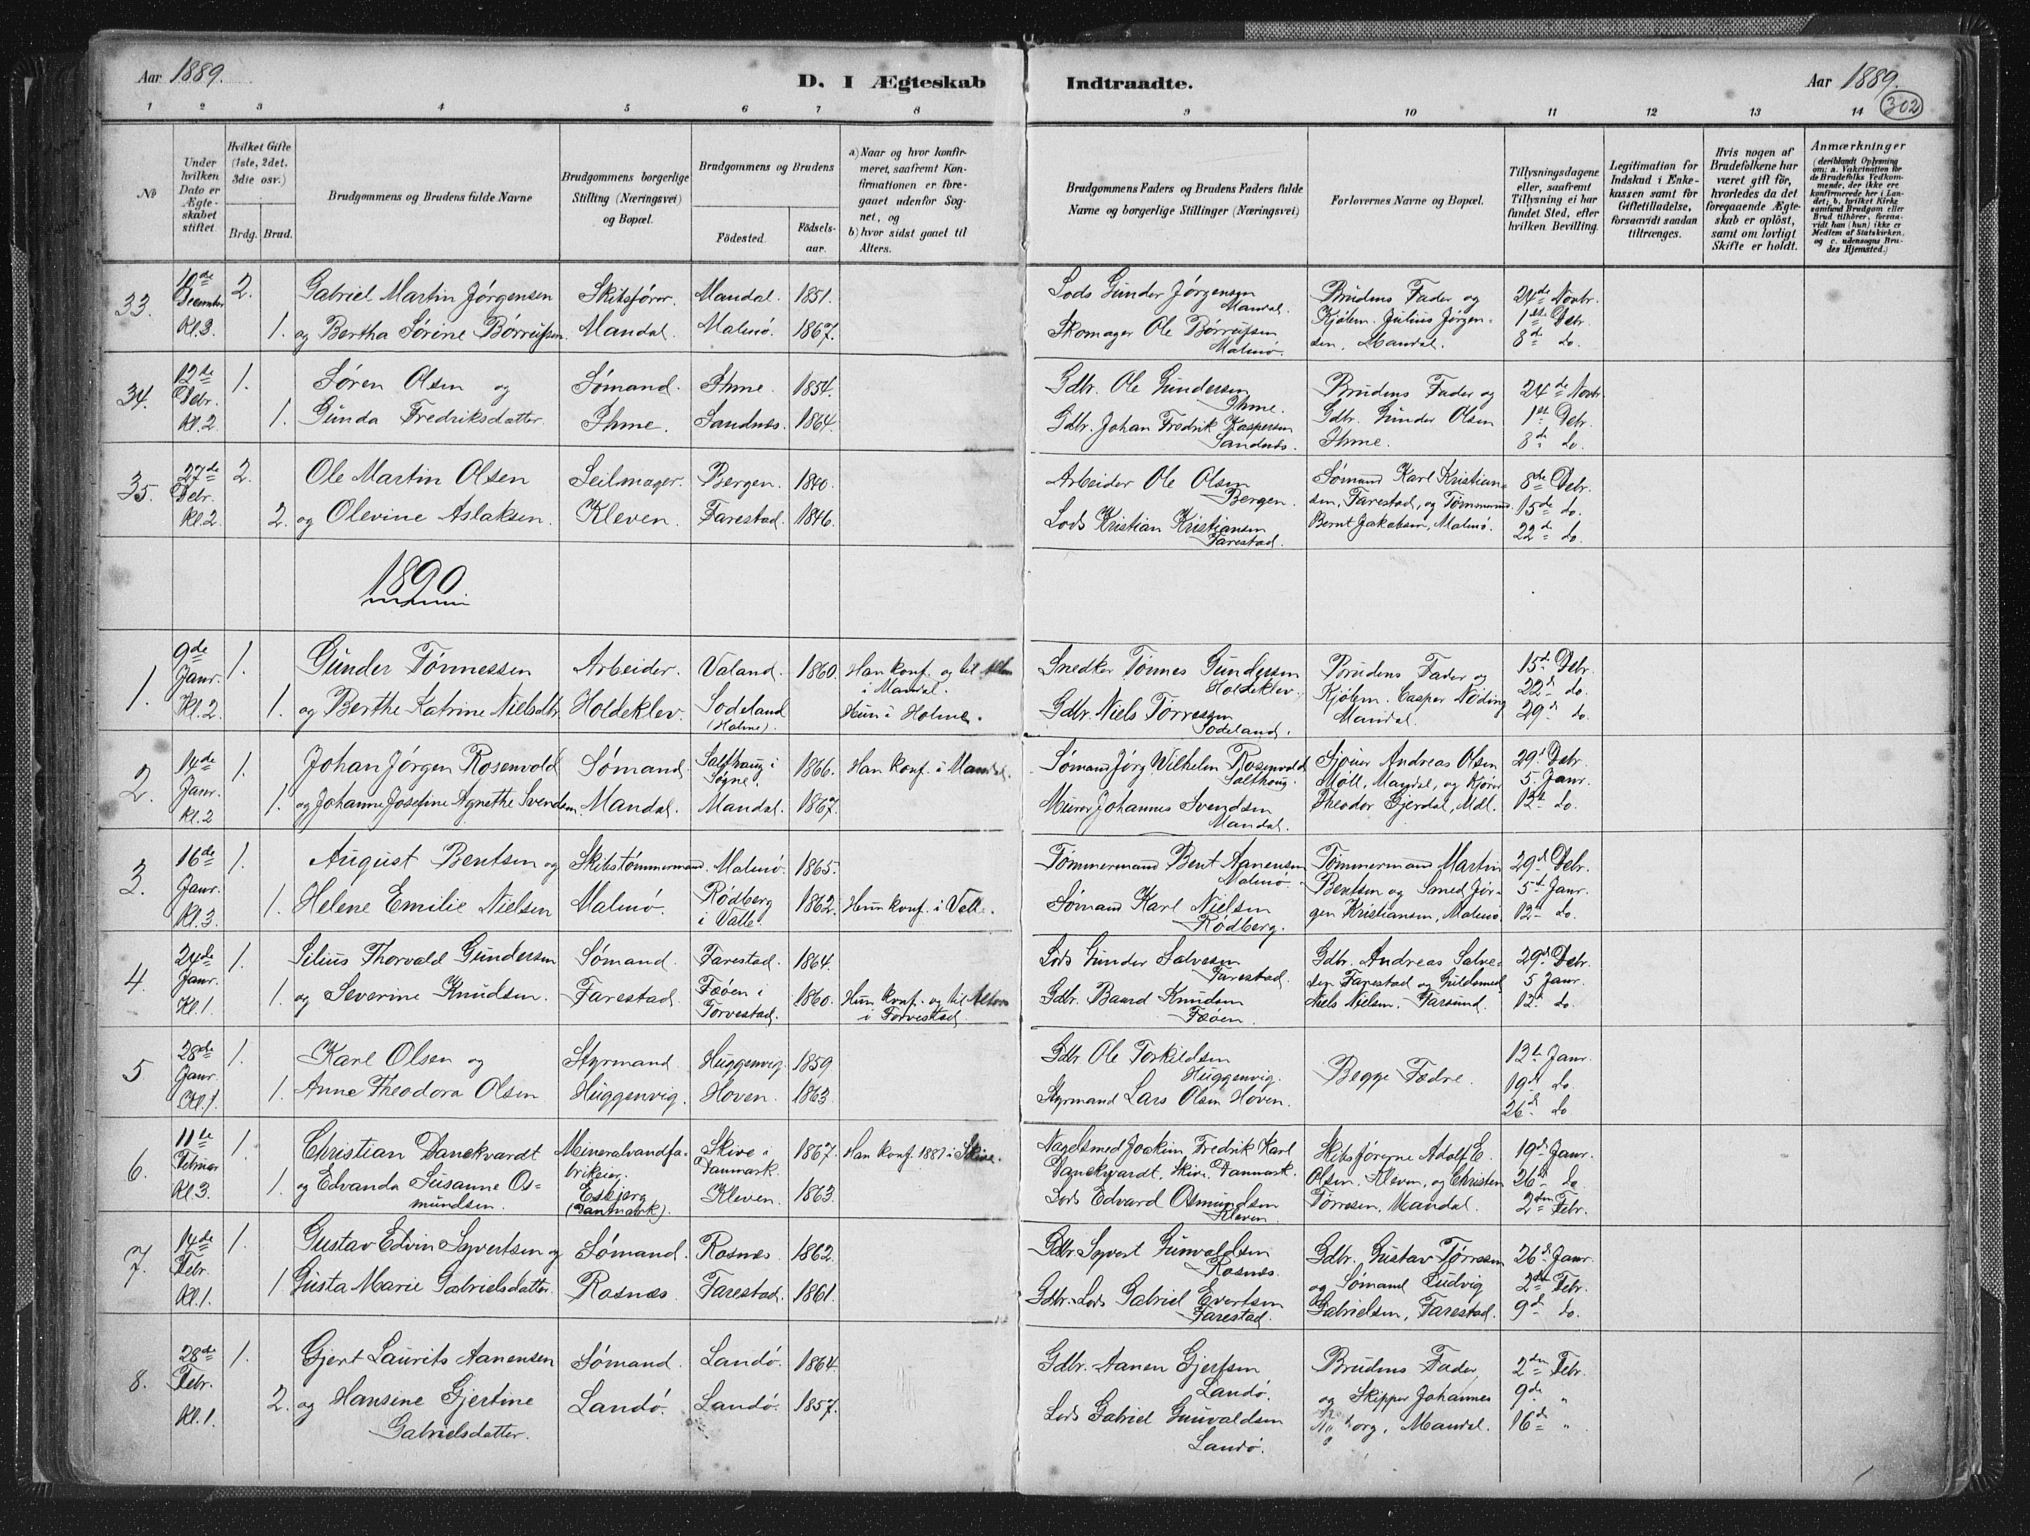 Aar 1889.
D. I Ægteskab Indtraadte.
Aar 1889.
302
1 2 3 4 5 6 7 8 9 10 11 12 13 14
No
Under hvilken Dato er Ægteskabet stiftet.
Hvilket Gifte (1ste, 2det, 3die osv.)
Brdg. Brud.
Brudgommens og Brudens fulde Navne
Brudgommens borgerlige Stilling (Næringsvei) og Bopæl.
Brudgommens og Brudens
Fødested.
Fødselsaar.
a) Naar og hvor konfirmeret, saafremt Konfirmationen er foregaaet udenfor Sognet, og
b) hvor sidst gaaet til Alters.
Brudgommens Faders og Brudens Faders fulde Navne og borgerlige Stillinger (Næringsvei)
Forlovernes Navne og Bopæl.
Tillysningsdagene eller, saafremt Tillysning ei har fundet Sted, efter hvilken Bevilling.
Legitimation for Indskud i Enkekassen samt for Giftetilladelse, forsaavidt saadan tiltrænges.
Hvis nogen af Brudefolkene har været gift før, hvorledes da det foregaaende Ægteskab er opløst, samt om lovligt Skifte er holdt.
Anmærkninger
(deriblandt Oplysning om: a. Vaccination for de Brudefolks Vedkommende, der ikke ere konfirmerede her i Landet; b. hvilket Kirkesamfund Brudgom eller Brud tilhører, forsaavidt han (hun) ikke er Medlem af Statskirken, og c. udensogns Brudes Hjemsted.)
33. 10de Decembr. Kl. 3. 2. Gabriel Martin Jørgensen Skibsfører. Mandal. 1851. Lods Gunder Jørgensen Mandal. Brudens Fader og 24de Novbr.
1. og Bertha Sørine Børreisen. Mandal. Malmø. 1867. Skomager Ole Børreisen Malmø. Kjøbm. Julius Jørgensen, Mandal. 1ste Debr. 8de do.
34. 12de Debr. Kl. 2 1. Søren Olsen og Sømand. Ihme. 1854. Gdbr. Ole Gundersen Ihme. Brudens Fader og 24de Novbr.
1. Gunda Fredriksdatter. Ihme. Sandnæs. 1864. Gdbr. Johan Fredrik Kaspersen Sandnæs. Gdbr. Gunder Olsen Ihme. 1ste Debr. 8de do.
35. 27de Debr. Kl. 2 2. Ole Martin Olsen Seilmager. Bergen. 1840. Arbeider Ole Olsen Bergen. Sømand Karl Kristiansen, Farestad, og Tømmermd. 8de Debr.
2. og Olevine Aslaksen. Kleven. Farestad. 1846. Lods Kristian Kristiansen Farestad. Bernt Jakobsen, Malmø. 15de do. 22d do.
1890
1. 9de Janr. Kl. 2. 1. Gunder Tønnessen Arbeider. Valand. 1860. Han konf. og til Alters i Mandal. Snedker Tønnes Gundersen Holdeklev. Brudens Fader og 15de Debr.
1. og Berthe Katrine Nielsdtr. Holdeklev. Sodeland (Holme). Hun i Holme. Gdbr. Niels Tørresen Sodeland. Kjøbm. Casper Nøding Mandal. 22d do. 29d do.
2. 14de Janr. Kl. 2 1. Johan Jørgen Rosenvold Sømand. Salthaug i Søgne. 1866. Han konf. i Mandal. Sømand Jørg. Wilhelm Rosenvold Salthaug. Sjouer Andreas Olsen Møll, Mandal, og Kjører 29d Debr.
1. og Johanne Josefine Agnethe Svendsen. Mandal. Mandal. 1867. Murer Johannes Svendsen Mandal. Theodor Gjerdal, Mdl. 5. Janr. 12te do.
3. 16de Janr. Kl. 3. 1. August Bentsen og Skibstømmermand. Malmø. 1865. Tømmermand Bent Aanensen Malmø. Tømmermand Martin 29d Debr.
1. Helene Emilie Nielsen Malmø. Rødberg i Valle. 1862. Hun konf. i Valle. Sømand Karl Nielsen Rødberg. Bentsen og Smed Jørgen Kristiansen, Malmø. 5te Janr. 12te do.
4. 24de Janr. Kl. 1. 1. Silius Thorvald Gundersen Sømand. Farestad. 1864. Lods Gunder Salvesen Farestad. Gdbr. Andreas Salvesen Farestad og Guldsmed 29d Debr.
1. og Severine Knudsen. Farestad. Fæøen i Torvestad. 1860. Hun konf. og til Alters i Torvestad. Gdbr. Baard Knudsen Fæøen. Niels Nielsen, Farsund. 5 Janr. 12te do.
5. 28de Janr. Kl. 1 1. Karl Olsen og Styrmand. Huggenvig. 1859 Gdbr Ole Torkildsen Huggenvig. Begge Fædre. 12te Janr.
1. Anne Theodora Olsen Huggenvig. Hoven. 1863. Styrmand Lars Olsen Hoven. 19de do 26de do
6. 11te Februar Kl. 3. 1. Christian Danckvardt Mineralvandfabrikeier. Skive i Danmark. 1867. Han konf. 1881 i Skive. Nagelsmed Joakim Fredrik Karl Danckvardt, Skive, Danmark. Skibsførerne Adolf E. 19d Janr.
1. og Edvanda Susanne Osmundsen. Esbjerg (Danmark). Kleven. 1863. Lods Edvard Osmundsen Kleven. Olsen, Kleven, og Christen Tørresen, Mandal. 26d do 2den Febr.
7. 14de Febr. Kl. 1. 1. Gustav Edvin Syvertsen og Sømand. Rosnæs. 1862. Gdbr. Syvert Gunvaldsen Rosnæs. Gdbr. Gustav Tørresen 26d Janr.
1 Gusta Marie Gabrielsdatter. Rosnæs. Farestad. 1861. Gdbr. Lods Gabriel Evertsen Farestad. og Sømand Ludvig Gabrielsen, Farestad. 2den Febr. 9d do.
8. 28de Febr. Kl. 1. 1. Gjert Laurits Aanensen Sømand. Landø. 1864. Gdbr. Aanen Gjertsen Landø. Brudens Fader 2den Febr.
2. og Hansine Gjertine Gabrielsdatter. Landø. Landø. 1857. Lods Gabriel Gunvaldsen Landø. og Skipper Johannes Mandal. 9de " 16de "